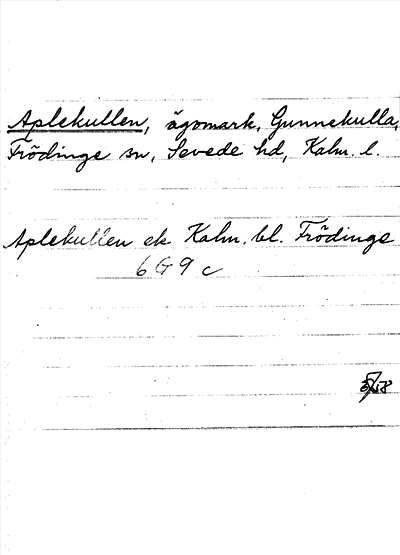 Aplekullen, ägomark, Gunnekulla,
Frödinge sn, Sevede hd, Kalm. l.
Aplekullen ek Kalm. bl. Frödinge
6 G 9 c